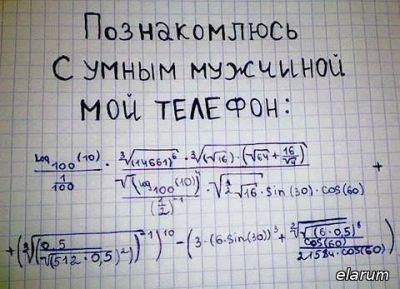 Познакомлюсь
с умным мужчиной
мой телефон:
log₁₀₀(10) / (1/100) · ³√(14661)⁶ · ³√((√16) · (√64 + 16/√4)) / (√(log₁₀₀(10))⁴ / (1/2)⁻¹ · √(³/₂ √16) · sin(30) · cos(60)) +
+ (³√(0,5 / √(512 · 0,5)²)⁻¹)¹⁰ − (3 · (6 · sin(30))³ + ³√√(6 · 0,5)⁶ / cos(60) / 21584 · cos(60))
elarum